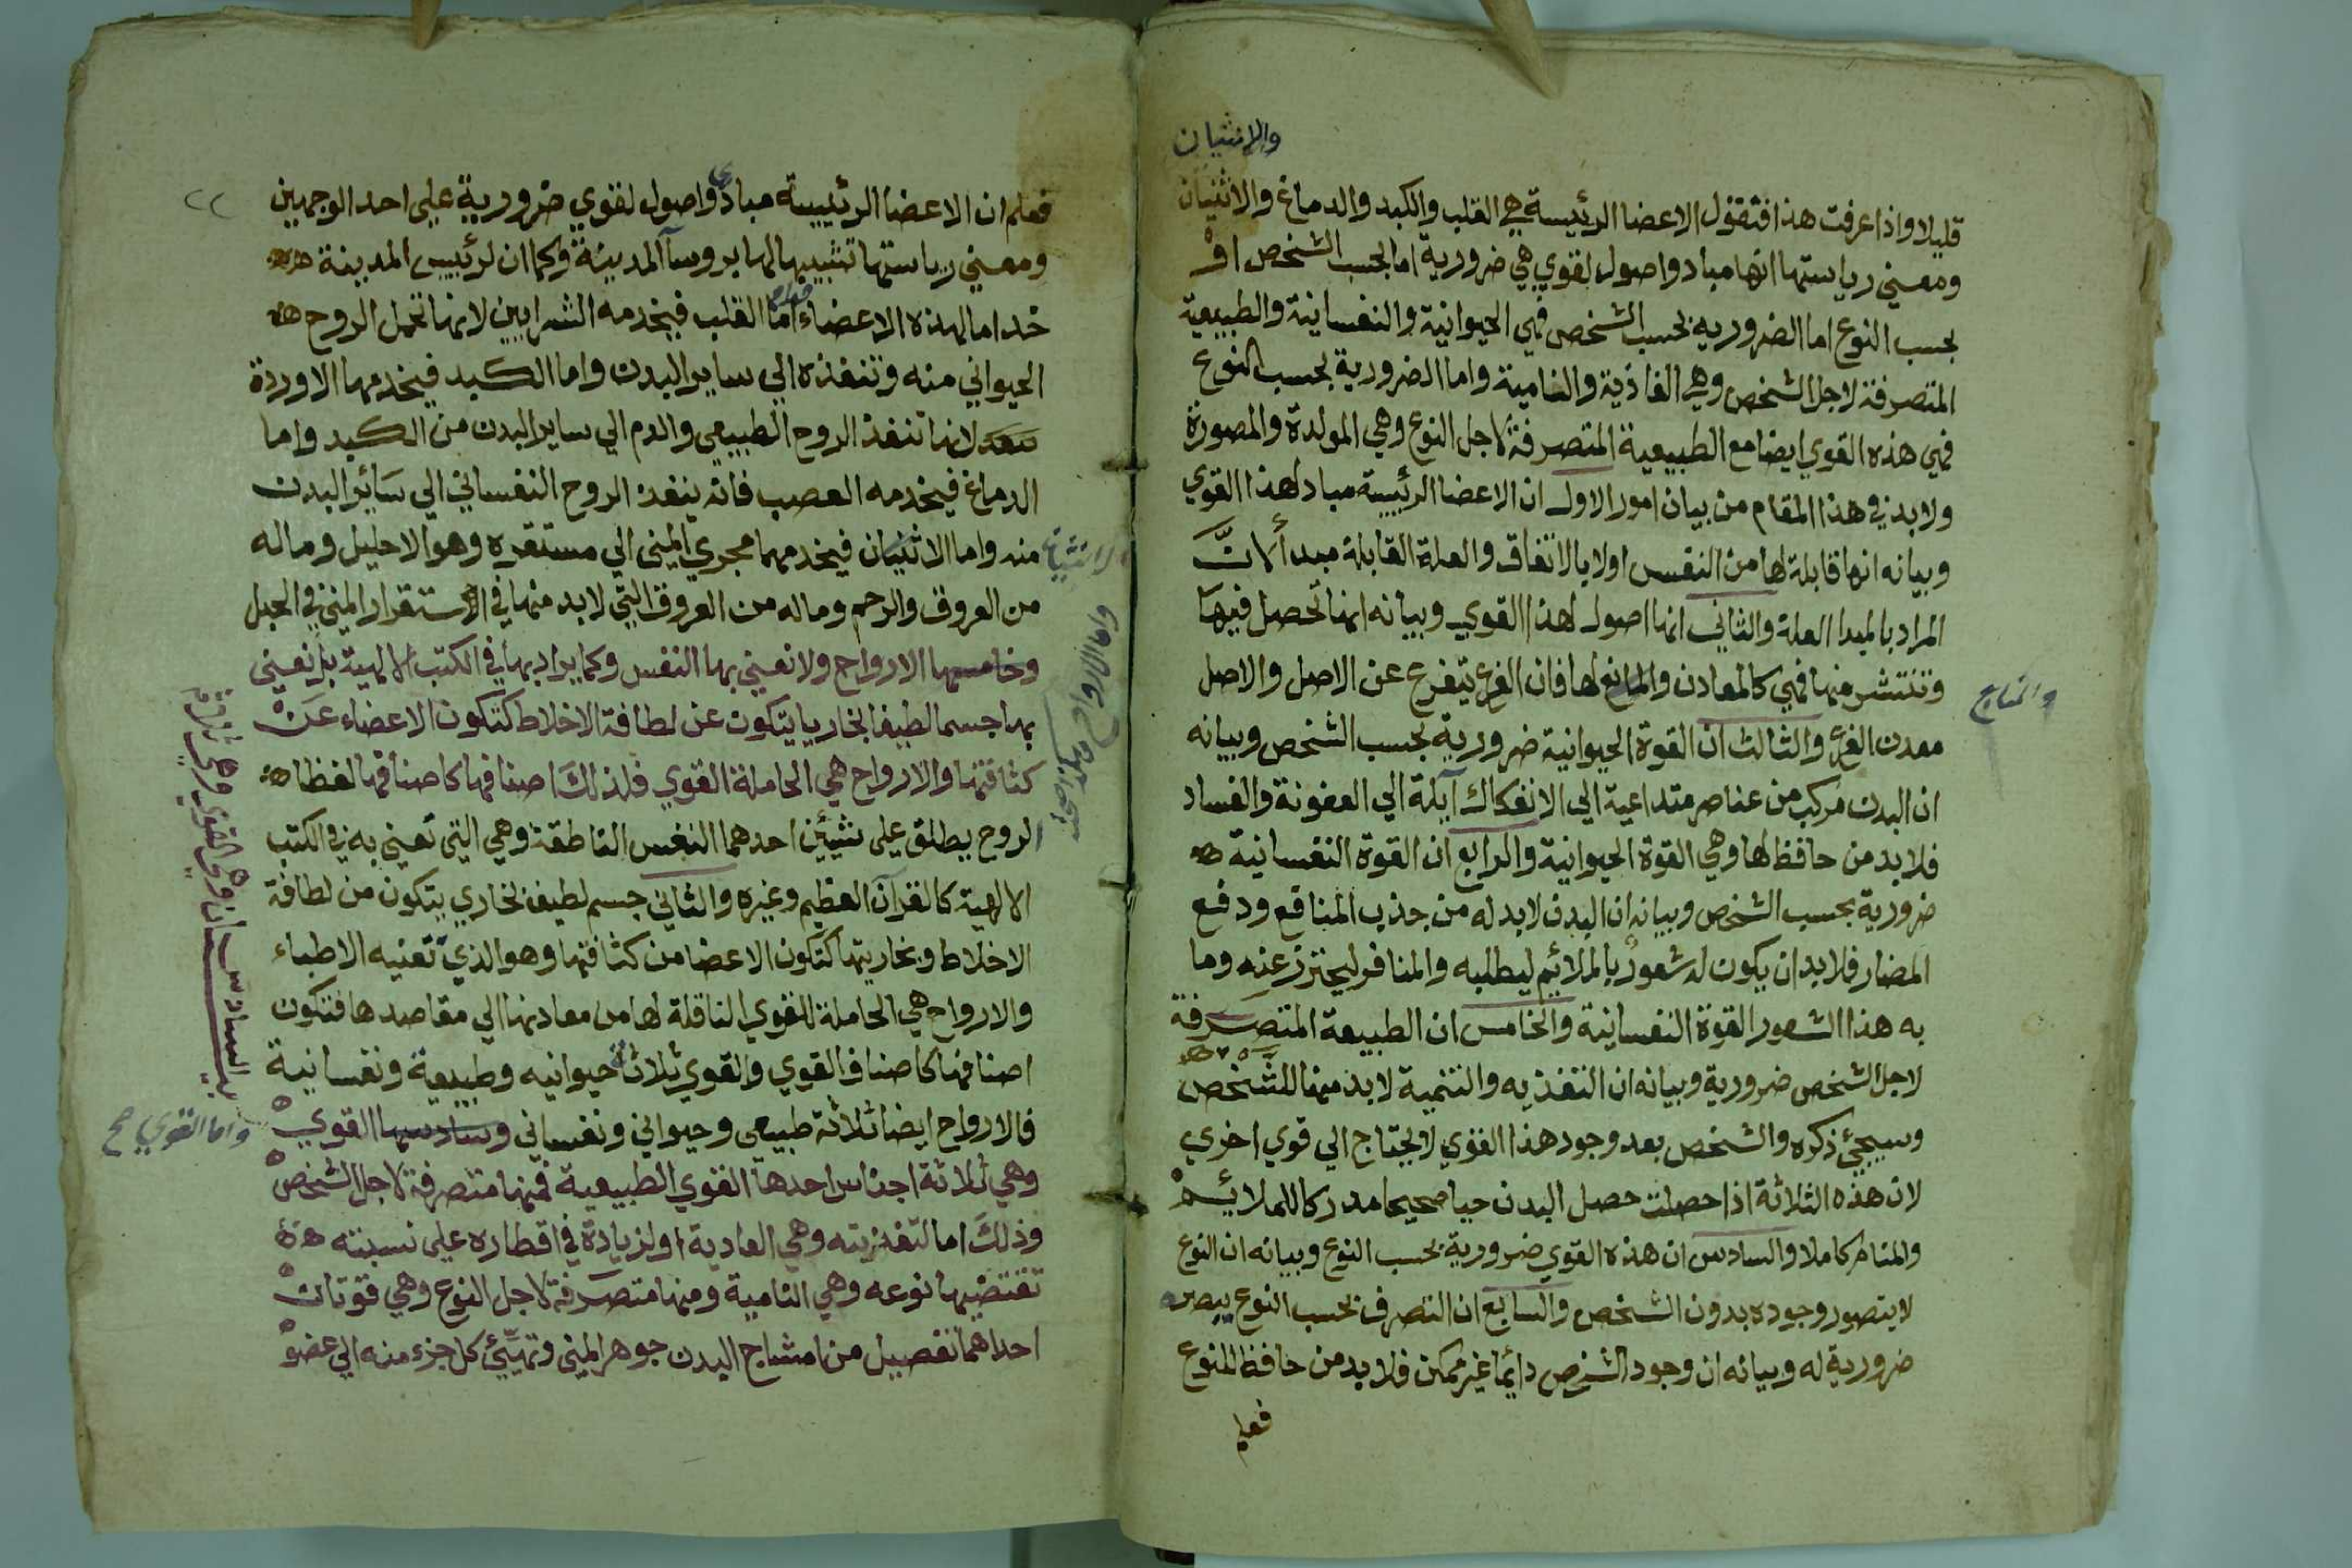 والانثيان
قليلا واذا عرفت هذا فنقول الاعضا الرئيسة هي القلب والكبد والدماغ والانثيان
ومعني رياستها انها مباد واصول لقوي هي ضرورية اما بحسب الشخص او
بحسب النوع اما الضروريه بحسب الشخص فهي الحيوانية والنفسانية والطبيعية
المتصرفة لاجل الشخص وهي الغاذية والنامية واما الضرورية بحسب النوع
فهي هذه القوي ايضا مع الطبيعية المتصرفة لاجل النوع وهي المولدة والمصورة
ولابد في هذا المقام من بيان امور الاول ان الاعضا الرئيسة مباد لهذا القوي
وبيانه انها قابلة لها من النفس اولا بالاتفاق والعلة القابلة مبدأ لان
المراد بالمبدا العلة والثاني انها اصول لهذا القوي وبيانه انها تحصل فيها
وتنتشر منها فهي كالمعادن لها فان الفرع يتفرع عن الاصل والاصل
والمنابع
معدن الفرع والثالث ان القوة الحيوانية ضرورية بحسب الشخص وبيانه
ان البدن مركب من عناصر متداعية الي الانفكاك آيلة الي العفونة والفساد
فلابد من حافظ لها وهي القوة الحيوانية والرابع ان القوة النفسانية
ضرورية بحسب الشخص وبيانه ان البدن لابد له من جذب المنافع ودفع
المضار فلابد ان يكون له شعور بالملائيم ليطلبه والمنافر ليحترز عنه وما
به هذا الشعور القوة النفسانية والخامس ان الطبيعة المتصرفة
لاجل الشخص ضرورية وبيانه ان التغذيه والتنمية لابد منها للشخص
وسيجئي ذكره والشخص بعد وجود هذا القوي لا يحتاج الي قوي اخري
لان هذه الثلاثة اذا حصلت حصل البدن حيا صحيحا مدركا للملائيم
والمنافر كاملا والسادس ان هذه القوي ضرورية بحسب النوع وبيانه ان النوع
لا يتصور وجوده بدون الشخص والسابع ان التصرف بحسب النوع
ضرورية له وبيانه ان وجود الشخص دائما غير ممكن فلابد من حافظ للنوع
فعلم
٢٢
فعلم ان الاعضا الرئييسة مبادي واصول لقوي ضرورية علي احد الوجهين
ومعني رياستها تشبيها لها بروسآ المدينة وكما ان لرئييس المدينة
خداما لهذه الاعضاء خدام اما القلب فيخدمه الشرايين لانها تحمل الروح
الحيواني منه وتنفذه الي ساير البدن واما الكبد فيخدمها الاوردة
لانها تنفذ الروح الطبيعي والدم الي ساير البدن من الكبد واما
الدماغ فيخدمه العصب فانه ينفذ الروح النفساني الي سائر البدن
منه واما الاثنيان فيخدمهما مجري المني الي مستقره وهو الاحليل وماله
الانثيان
من العروق والرحم وماله من العروق التي لابد منها في الاستقرار المني في الحبل
وخامسها الارواح ولا نعني بها النفس وكما يراد بها في الكتب الالهية بل نعني
واما الارواح
بها جسما لطيفا بخاريا يتكون عن لطافة الاخلاط كتكون الاعضاء عن
كثافتها والارواح هي الحاملة القوي فلذلك اصنافها كاصنافها لفظا
الروح يطلق علي شيئين احدهما النفس الناطقة وهي التي تعني به في الكتب
الالهية كالقرآن العظيم وغيره والثاني جسم لطيف بخاري يتكون من لطافة
الاخلاط وبخاريتها كتكون الاعضا من كثافتها وهو الذي تعنيه الاطباء
والارواح هي الحاملة للقوي الناقلة لها من معادنها الي مقاصدها فتكون
اصنافها كاصناف القوي والقوي ثلاثة حيوانيه وطبيعية ونفسانية
فالارواح ايضا ثلاثة طبيعي وحيواني ونفساني وسادسها القوي
واما القوي صح
وهي ثلاثة اجناس احدها القوي الطبيعية فمنها متصرفة لاجل الشخص
وذلك اما لتغذيته وهي الغادية او لزيادة في اقطاره علي نسبته
تقتضيها نوعه وهي النامية ومنها متصرفة لاجل النوع وهي قوتان
احداهما تفصيل من امشاج البدن جوهر المني وتهيئ كل جزء منه الي عضو